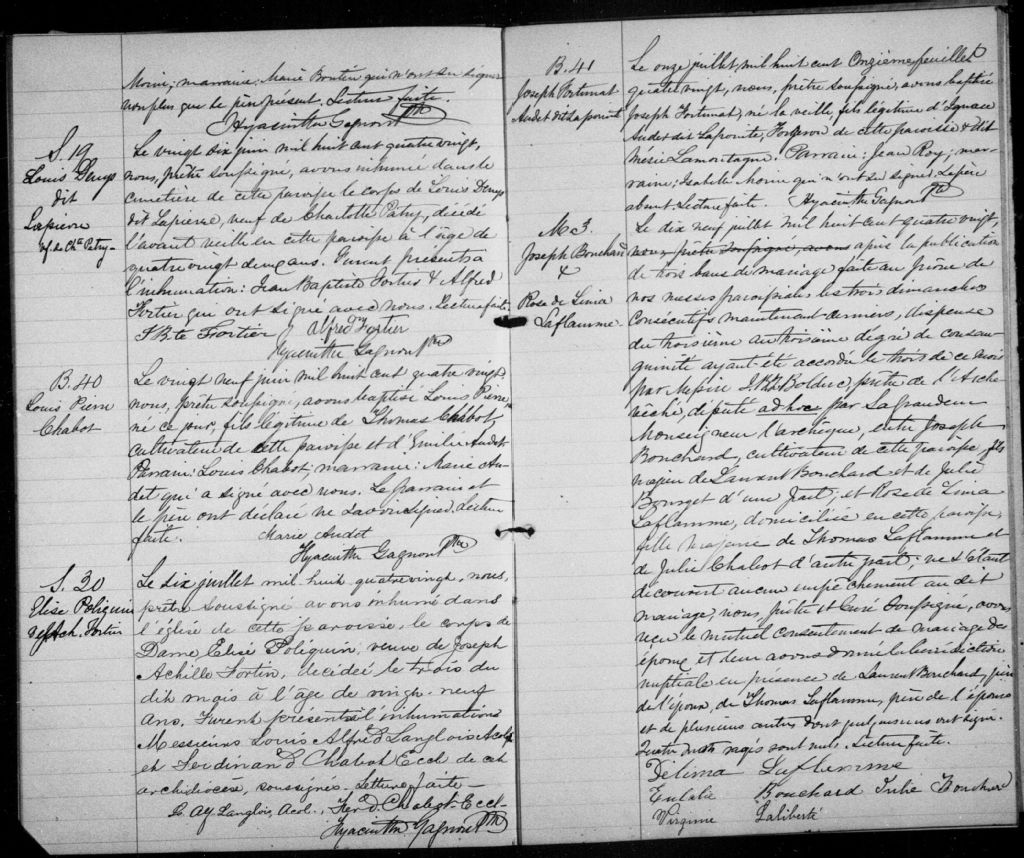 Morin; marraine: Marie Boutin qui n'ont su signer
non plus que le père présent. Lecture faite.
Hyacinthe Gagnon Ptre
S. 19
Louis Denys
dit
Lapierre
vf. de Ch.te Patry
Le vingt six juin mil huit cent quatre vingt,
nous, prêtre soussigné, avons inhumé dans le
cimetière de cette paroisse le corps de Louis Denys
dit Lapierre, veuf de Charlotte Patry, décédé
l'avant veille en cette paroisse à l'âge de
quatre vingt deux ans. Furent présents à
l'inhumation: Jean Baptiste Fortier & Alfred
Fortier qui ont signé avec nous. Lecture faite.
J Bte Fortier Alfred Fortier
Hyacinthe Gagnon Ptre
B. 40
Louis Pierre
Chabot
Le vingt neuf juin mil huit cent quatre vingt
nous, prêtre soussigné, avons baptisé Louis Pierre,
né ce jour, fils légitime de Thomas Chabot,
cultivateur de cette paroisse et d'Emilie Audet.
Parrain: Louis Chabot; marraine: Marie Au-
det qui a signé avec nous. Le parrain et
le père ont déclaré ne savoir signer. Lecture
faite. Marie Audet
Hyacinthe Gagnon Ptre
S. 20
Elise Poliquin
Ach. Fortin
Le dix juillet mil huit quatre vingt, nous,
prêtre soussigné avons inhumé dans
l'église de cette paroisse, le corps de
Dame Elise Poliquin, veuve de Joseph
Achille Fortin, décédée le trois du
dit mois à l'âge de vingt-neuf
ans. Furent présents à l'inhumation
Messieurs Louis Alfred Langlois Acol.
et Ferdinand Chabot Eccl. de cet
archidiocèse, soussignés. Lecture faite.
L. Alf Langlois, Acol. Ferd. Chabot Eccl-
Hyacinthe Gagnon Ptre
B. 41
Joseph Fortunat
Audet dit Lapointe
Onzième feuillet
Le onze juillet, mil huit cent
quatre vingt, nous, prêtre soussigné, avons baptisé
Joseph Fortunat, né la veille, fils légitime d'Ignace
Audet dit Lapointe, forgeron de cette paroisse & d'
Lamontagne. Parrain: Jean Roy; mar-
raine; Isabelle Morin qui n'ont su signer. Le père
absent. Lecture faite. Hyacinthe Gagnon Ptre
M 3.
Joseph Bouchard
&
Rose de Lima
Laflamme.
Le dix neuf juillet mil huit cent quatre vingt,
nous prêtre soussigné, avons après la publication
de trois bans de mariage faite au prône de
nos messes paroissiales les trois dimanches
consécutifs maintenant derniers, dispense
du troisième au troisième dégré de consan-
guinité ayant été accordée le trois de ce mois
par Messire J. Bolduc, prêtre de l'Arche-
vêché, député ad hoc par Sa Grandeur
Monseigneur l'archevêque, entre Joseph
Bouchard, cultivateur de cette paroisse, fils
majeur de Laurent Bouchard et de Julie
Bourget d'une part; et Rose de Lima
Laflamme, domiciliée en cette paroisse,
fille majeure de Thomas Laflamme et
de Julie Chabot d'autre part; ne s'étant
découvert aucun empêchement au dit
mariage, nous, prêtre et curé soussigné, avons
reçu le mutuel consentement de mariage des
époux, et leur avons donné la bénédiction
nuptiale en présence de Laurent Bouchard, père
de l'époux, de Thomas Laflamme, père de l'épouse
et de plusieurs autres dont quelques uns ont signé.
Quatre mots rayés sont nuls. Lecture faite.
Délima Laflamme
Eulalie Bouchard Julie Bouchard
Virginie Laliberté